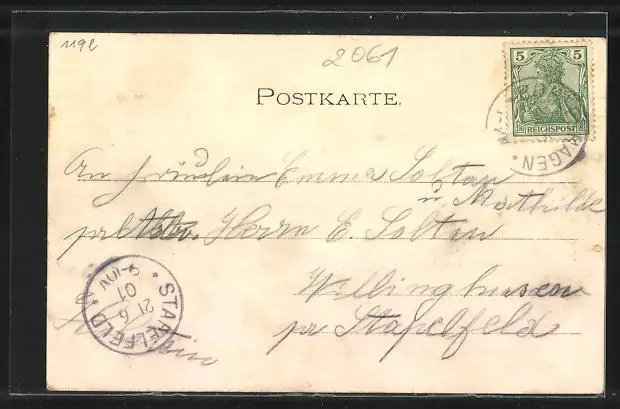 1192
2061
POSTKARTE.
5
REICHSPOST
HAGEN *
An Fräulein Emma Soltau
u. Mathilde
Herrn E. Soltau
Willinghusen
pr Stapelfeld
* STAPELFELD
21 6
01
9-10V